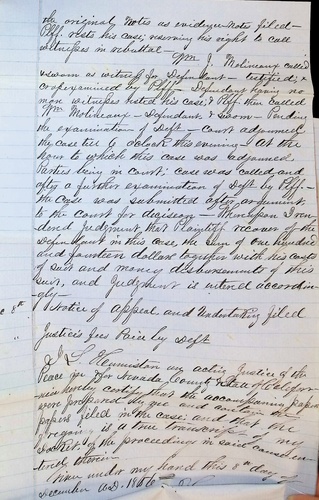 the original Notes as evidence Notes filed—
Plff. rests his case, reserving his right to call
witnesses in rebuttal — Wm J. Molineaux called
& sworn as witness for Defendant — testified; &
crossexamined by Plff — Defendant having no
more witnesses rested his case; Plff then called
Wm Molineaux — Defendant, & sworn — Pending
the examination of Deft — Court adjourned
the case till 6 oclock this evening — At the
hour to which this case was adjourned
Parties being in court; case was called and
after a further examination of Deft by Plff —
the case was submitted after argument
to the court for decision — Thereupon I ren-
dered Judgment that Plaintiff recover of the
Defendant in this case, the sum of one hundred
and fourteen dollars together with his costs
of suit and money disbursements of this
suit, and Judgment is entered accordin-
gly —
Notice of Appeal and Undertaking filed
Justices fees Paid by Deft
acting Justice of the
Peace for Nevada County State of Califor-
nia hereby certify that the accompanying papers
were prepared by me and contain the
papers filed in the case; and that the
foregoing is a true transcript of my
Docket, of the proceedings in said cause en-
tered therein —
Given under my hand this 8th day —
December A.D. 1866 —